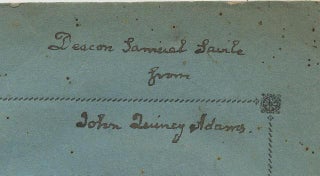 Deacon Samuel Savile
from
John Quincy Adams.